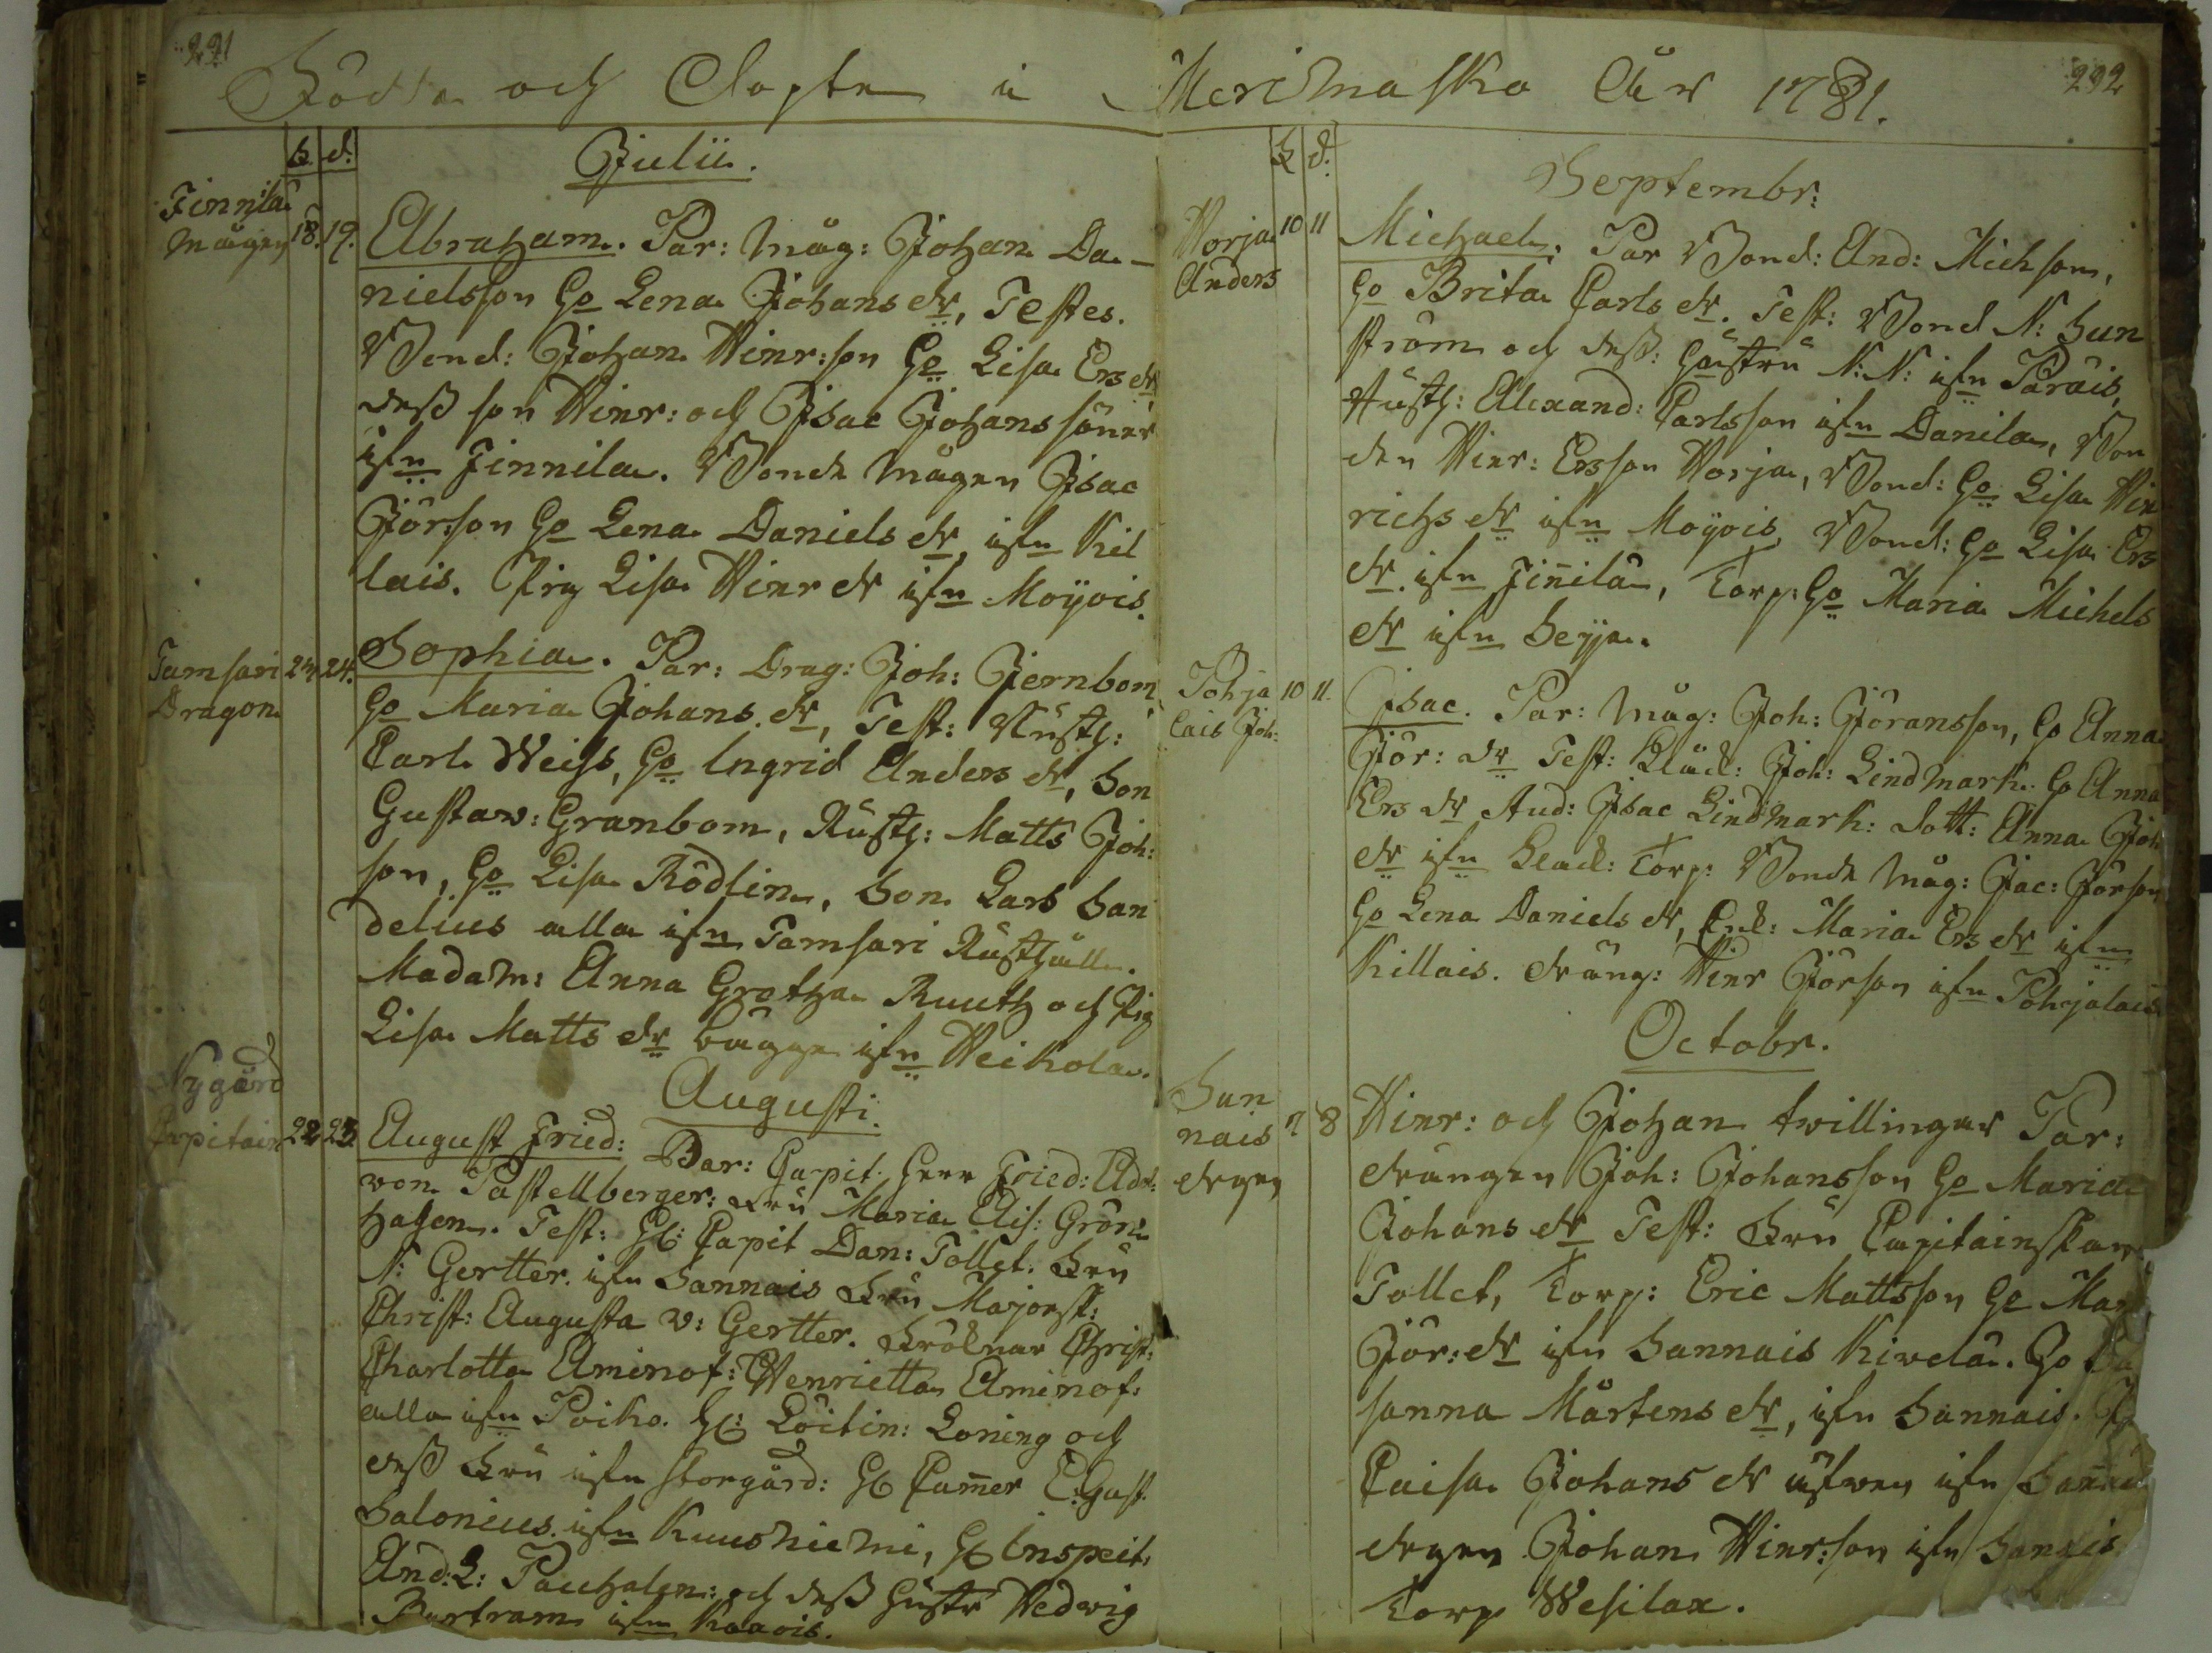 221
Födde och Döpte i
f. d.
Julii.
Finnila
mågen 18. 19. Abraham. Par: Måg: Johan Da-
nielsson Ho Lena Johans dr, Testes.
Bond: Johan Hinr:son Ho Lisa Ers dr
deß son Hinr: och Isac Johans söner
ifrn Finnila. Bonde mågen Isac
Jörsson Ho Lena Daniels dr, ifrn Kil
lais. Pig Lisa Hinr dr ifrn Moÿois.
Tamsari 24 24. Sophia. Par: Drag: Joh: Jernbom
Dragon Ho Maria Johans dr, Test: Rusth:
Carl Weiss, Ho Ingrid Anders dr, Son
Gustav: Granbom, Rusth: Matts Joh:
son, Ho Lisa Rödlin, Son Lars San
delius alla ifrn Tamsari Rusthåll.
Madam: Anna Gretha Ruuth och Pig
Lisa Matts dr bägge ifrn Heikola.
Augusti.
Nygård
Capitain 22 23 August Fried: Par: Capit. Herr Fried: Adr:
von Pastellberger: Fru Maria Elis: Grön
hagen. Test: Hr: Capit Dan: Tollet. Fru
N: Gertter. ifrn Sannais Fru Majorsk:
Christ: Augusta v: Gertter. Fröknar Christ:
Charlotta Aminof: Henrietta Aminof:
alla ifrn Poiko. Hr: Löitin: Loning och
deß Fru ifrn Storgård: Hr Camer E: Gust.
Salonius. ifrn Kuusniemi, Hr Inspect.
And: L: Pauchalen: och deß Hustr Hedwig
Bartram ifrn Kaavois.
222
Merimasko År 1781.
f d.
Septembr:
Horja 10 11 Michael. Par Bond: And: Michson,
Anders Ho Brita Carls dr. Test: Bond N: Sun
ström och deß: Hustru N:N: ifrn Parais,
Rusth: Alexand: Carlsson ifrn Danila, Bon
den Hinr: Ersson Horja, Bond: Ho Lisa Hin
richs dr ifrn Moÿois, Bond: Ho Lisa Ers
dr. ifrn Finila, Torp: Ho Maria Michels
dr ifrn Seppä.
Pohja 10 11. Isac. Par: Måg: Joh: Göransson, Ho Anna
lais Joh: Jör: dr Test: Klåck: Joh: Lindmark. Ho Anna
Ers dr Stud: Isac Lindmark: Dott: Anna Joh
dr ifrn Klåck: Torp: Bonde Måg: Isac: Jörson
Ho Lena Daniels dr, Enk: Maria Ers dr ifrn
Killais. Dräng: Hinr Jörson ifrn Pohjalais
Octobr.
San
nais 7 8 Hinr: och Johan twillingar Par:
drgen drängen Joh: Johansson Ho Maria
Johans dr Test: Fru Capitainskan
Tollet, Torp: Eric Mattsson Ho Mar
Jör: dr ifrn Sannais Kivelä. Ho Su
sanna Mårtens dr, ifrn Sannais.
Caisa Johans dr äfven ifrn Sannais
drgen Johan Hinr:son ifrn Sannais
Torp Wesilax.